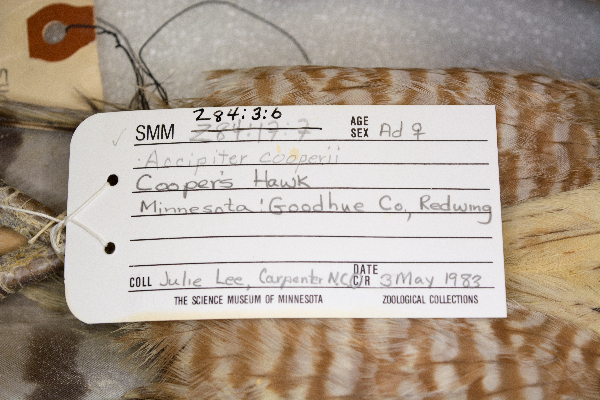 Z84:3:6
SMM Z84:17:7 AGE SEX Ad ♀
Accipiter cooperii
Cooper's Hawk
Minnesota: Goodhue Co., Redwing
COLL Julie Lee, Carpenter N.C. DATE C/R 3 May 1983
THE SCIENCE MUSEUM OF MINNESOTA ZOOLOGICAL COLLECTIONS